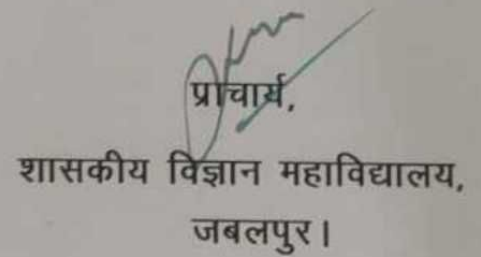 प्राचार्य,
शासकीय विज्ञान महाविद्यालय,
जबलपुर।